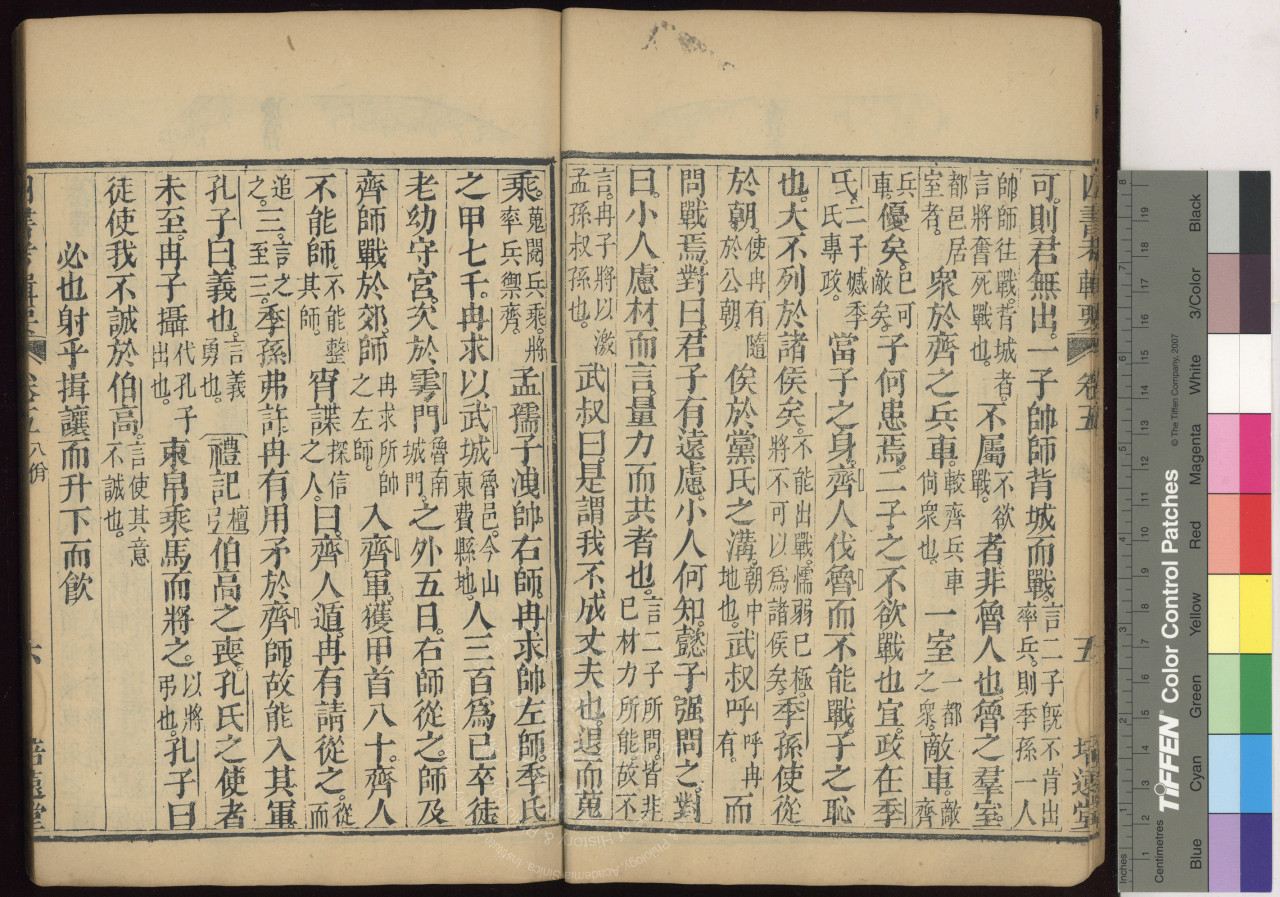 可。則君無出。一子帥師背城而戰。言二子旣不肯出率兵。則季孫一人
帥師往戰。背城者。言將奮死戰也。不屬不欲戰。者非魯人也。魯之羣室。
都邑居室者。衆於齊之兵車。較齊兵車尙衆也。一室一都之衆。敵車。敵齊
兵車。優矣。已可敵矣。子何患焉。二子之不欲戰也宜。政在季
氏。二子憾季氏專政。當子之身。齊人伐魯而不能戰。子之恥
也。大不列於諸侯矣。不能出戰。懦弱已極。將不可以爲諸侯矣。季孫使從
於朝。使冉有隨於公朝。俟於黨氏之溝。朝中地也。武叔呼呼冉有。而
問戰焉。對曰。君子有遠慮。小人何知。懿子强問之。對
曰。小人慮材而言。量力而共者也。言二子所問。皆非己材力所能。故不
言。冉子將以激孟孫叔孫也。武叔曰。是謂我不成丈夫也。退而蒐
乘。蒐閱兵乘。將率兵禦齊。孟孺子洩帥右師。冉求帥左師。季氏
之甲七千。冉求以武城魯邑。今山東費縣地。人三百爲己卒徒
老幼守宮。次於雩門魯南城門。之外五日。右師從之。師及
齊師戰於郊。師冉求所帥之左師。入齊軍。獲甲首八十。齊人
不能師。不能整其師。宵諜探信之人。曰。齊人遁。冉有請從之。從而
追之。三。言之至三。季孫弗許。冉有用矛於齊師。故能入其軍。
孔子曰。義也。言義勇也。禮記檀弓伯高之喪。孔氏之使者
未至。冉子攝代孔子出也。束帛乘馬而將之。以將弔也。孔子曰
徒使我不誠於伯高。言使其意不誠也。
必也射乎揖讓而升下而飮
卷五 八佾
六
卷五
五